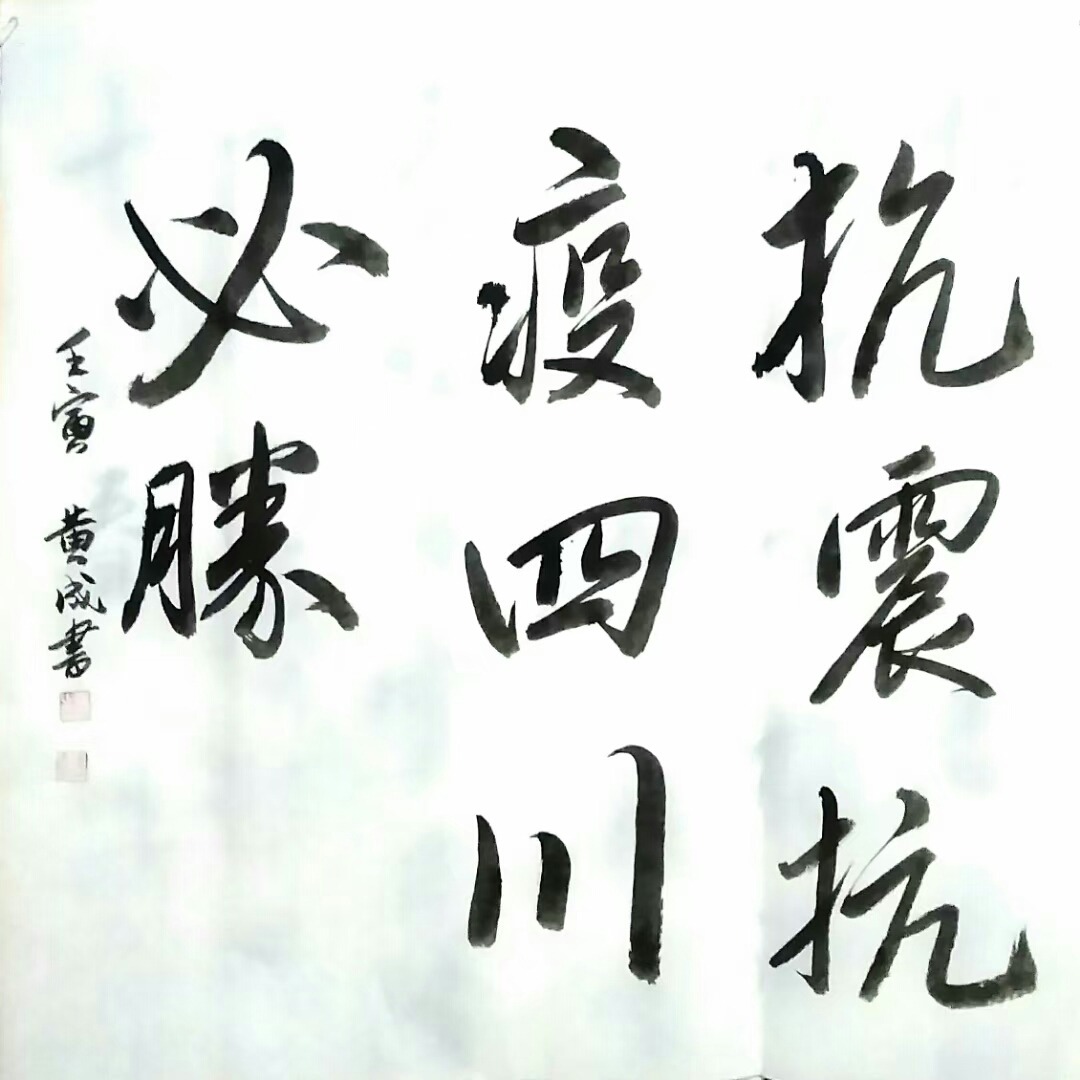 抗震抗
疫四川
必勝
壬寅 黄成書